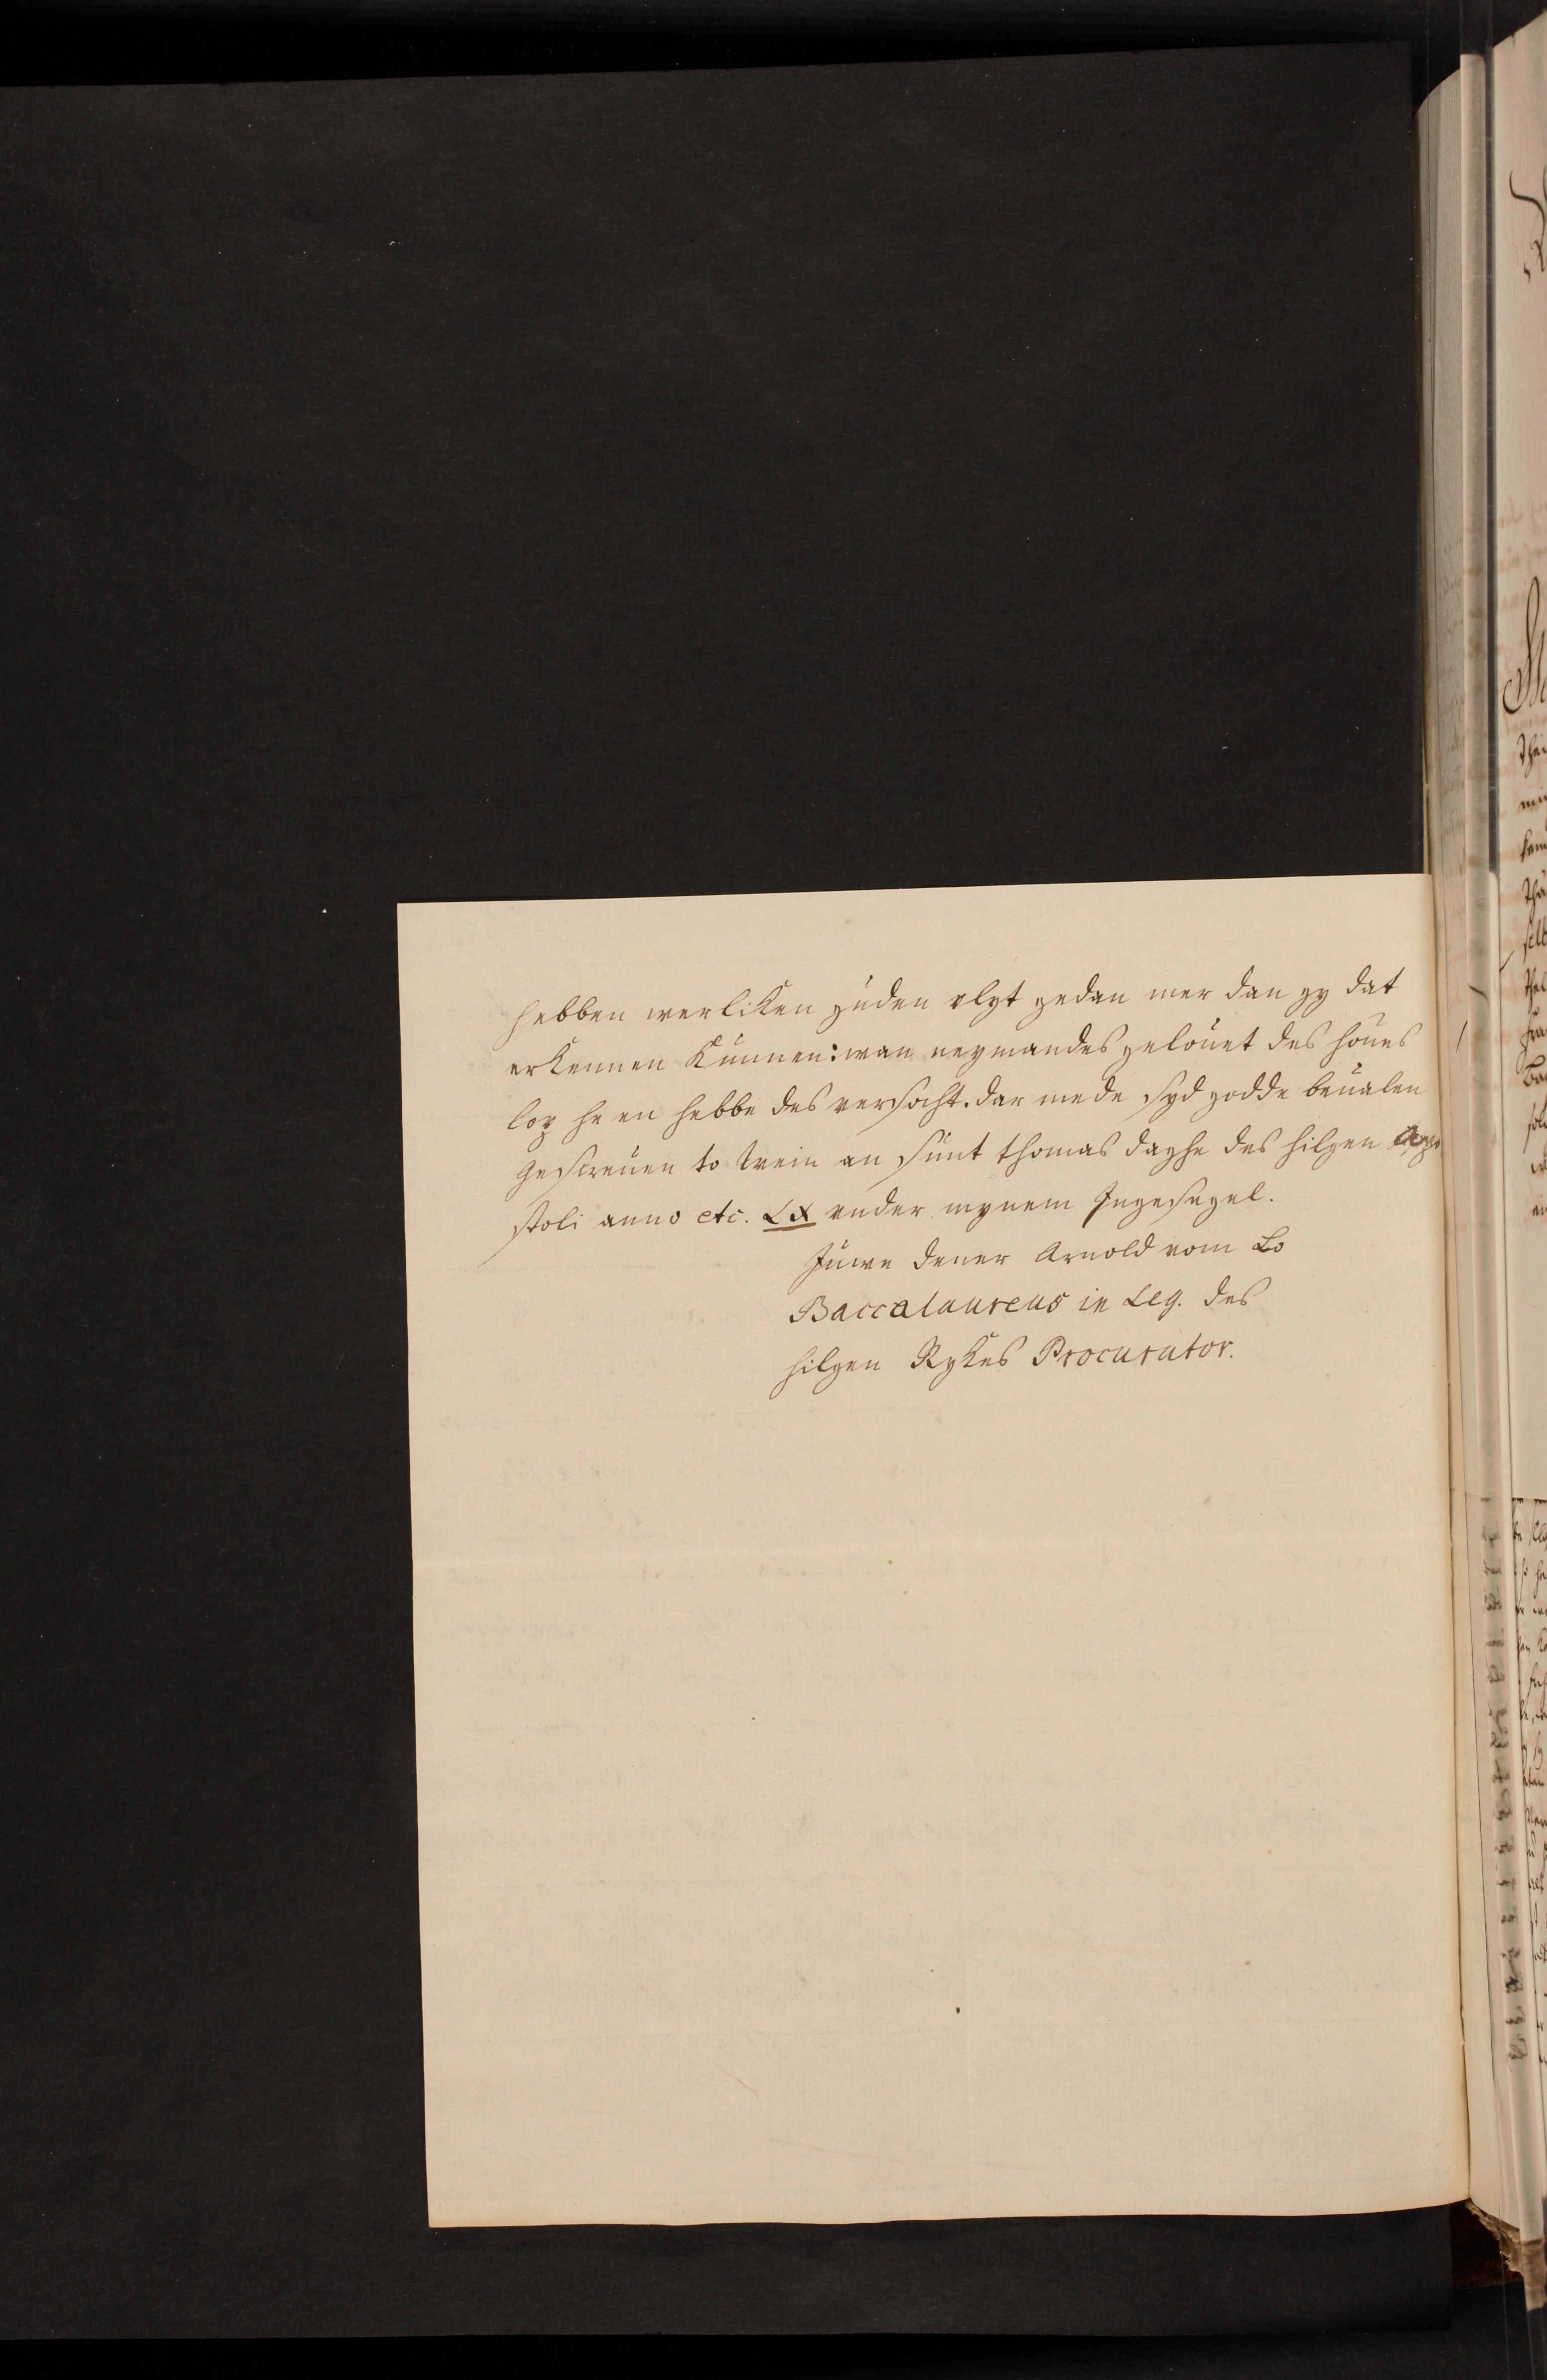 hebben werliken guden vlyt gedan mer dan gy dat
erkennen kunnen: wan neymandes gelouet des houes
loy he en hebbe des versocht. dar mede syd godde beualen
gescreuen to trein an sunt thomas daghe des hilgen Apo
stoli anno etc. LX under mynem Ingesegel.
Juwe dener Arnold vom Lo
Baccalaureus in Leg. des
hilgen Rykes Procurator.